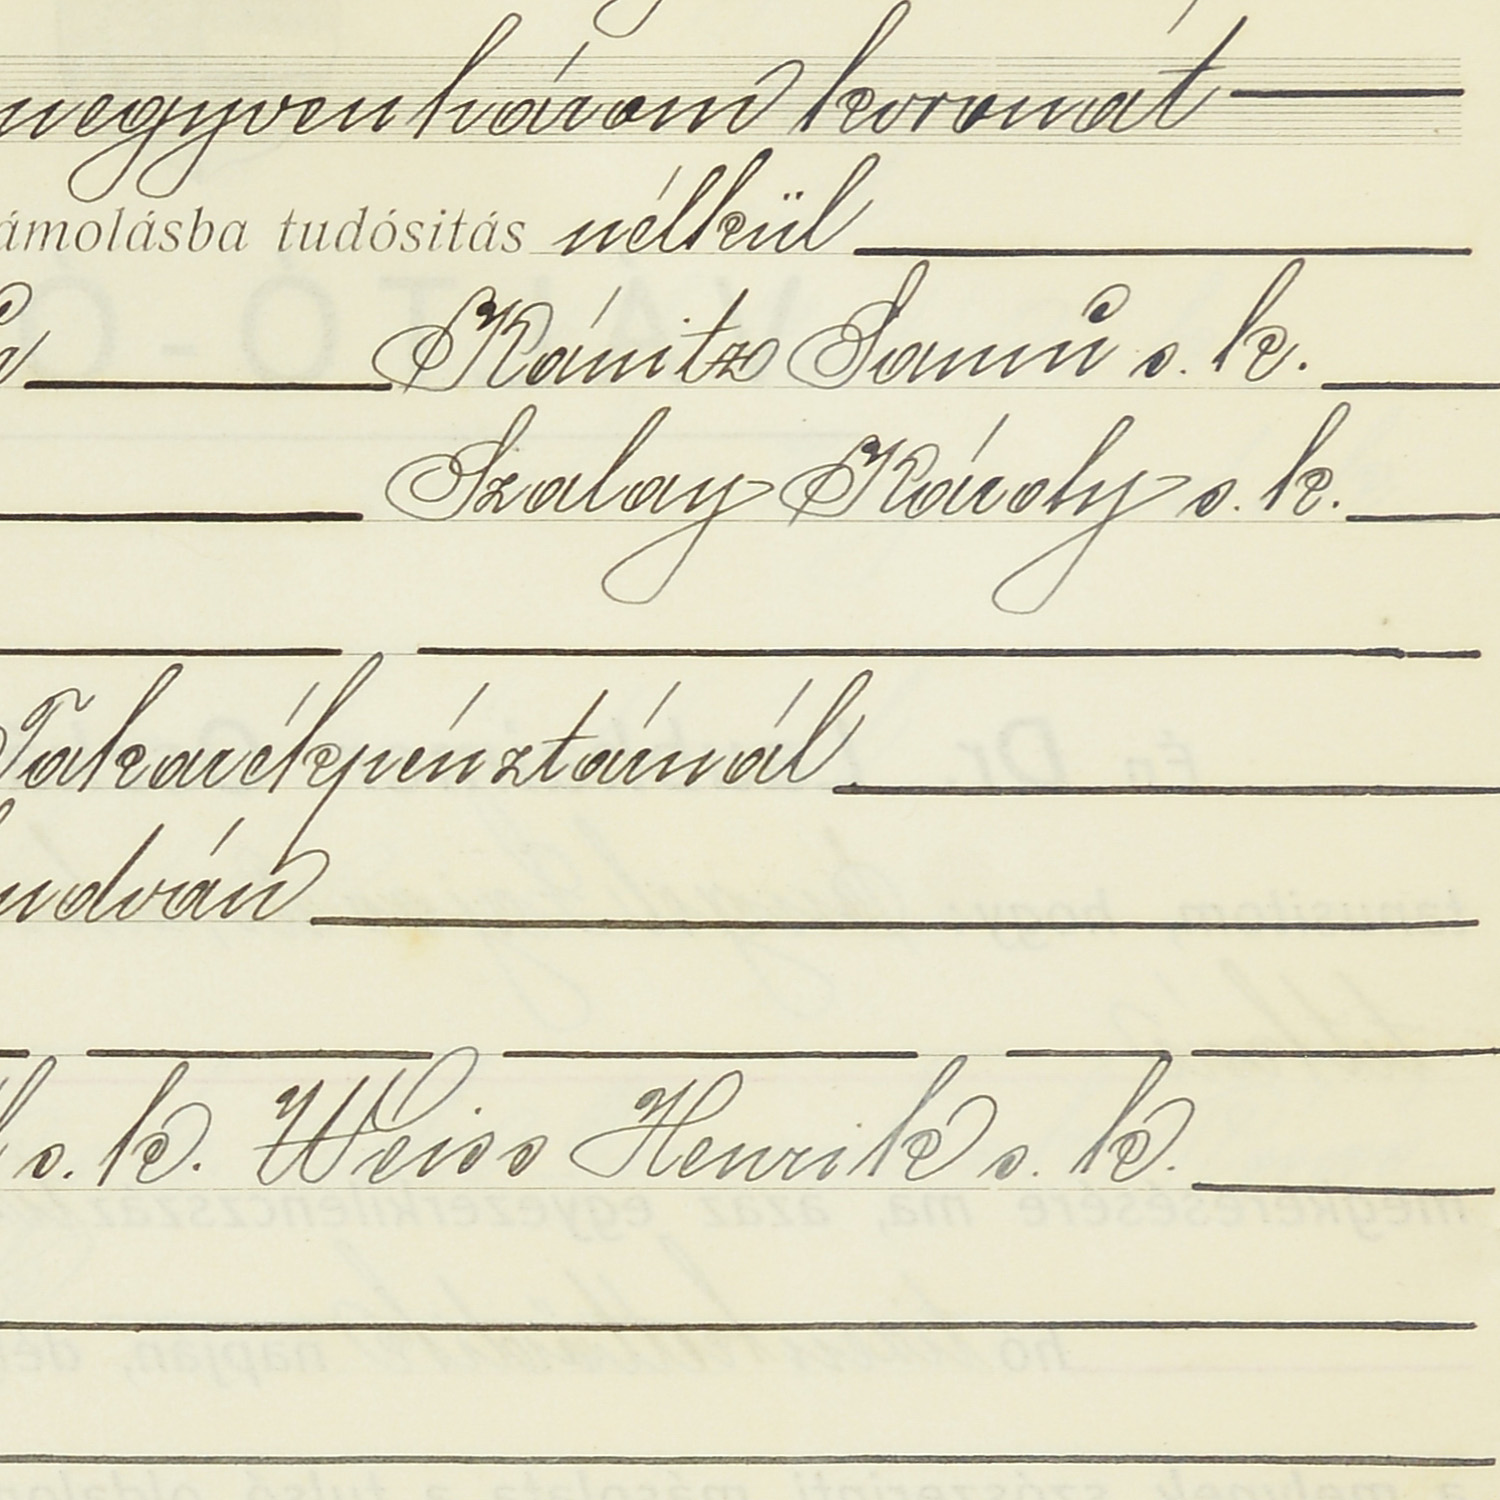 negyvenhárom koronát
ámolásba tudósitás nélkül
Kánitz Samu s. k.
Szalay Károly s. k.
Takarékpénztárnál
udván
s. k. Weiss Henrik s. k.